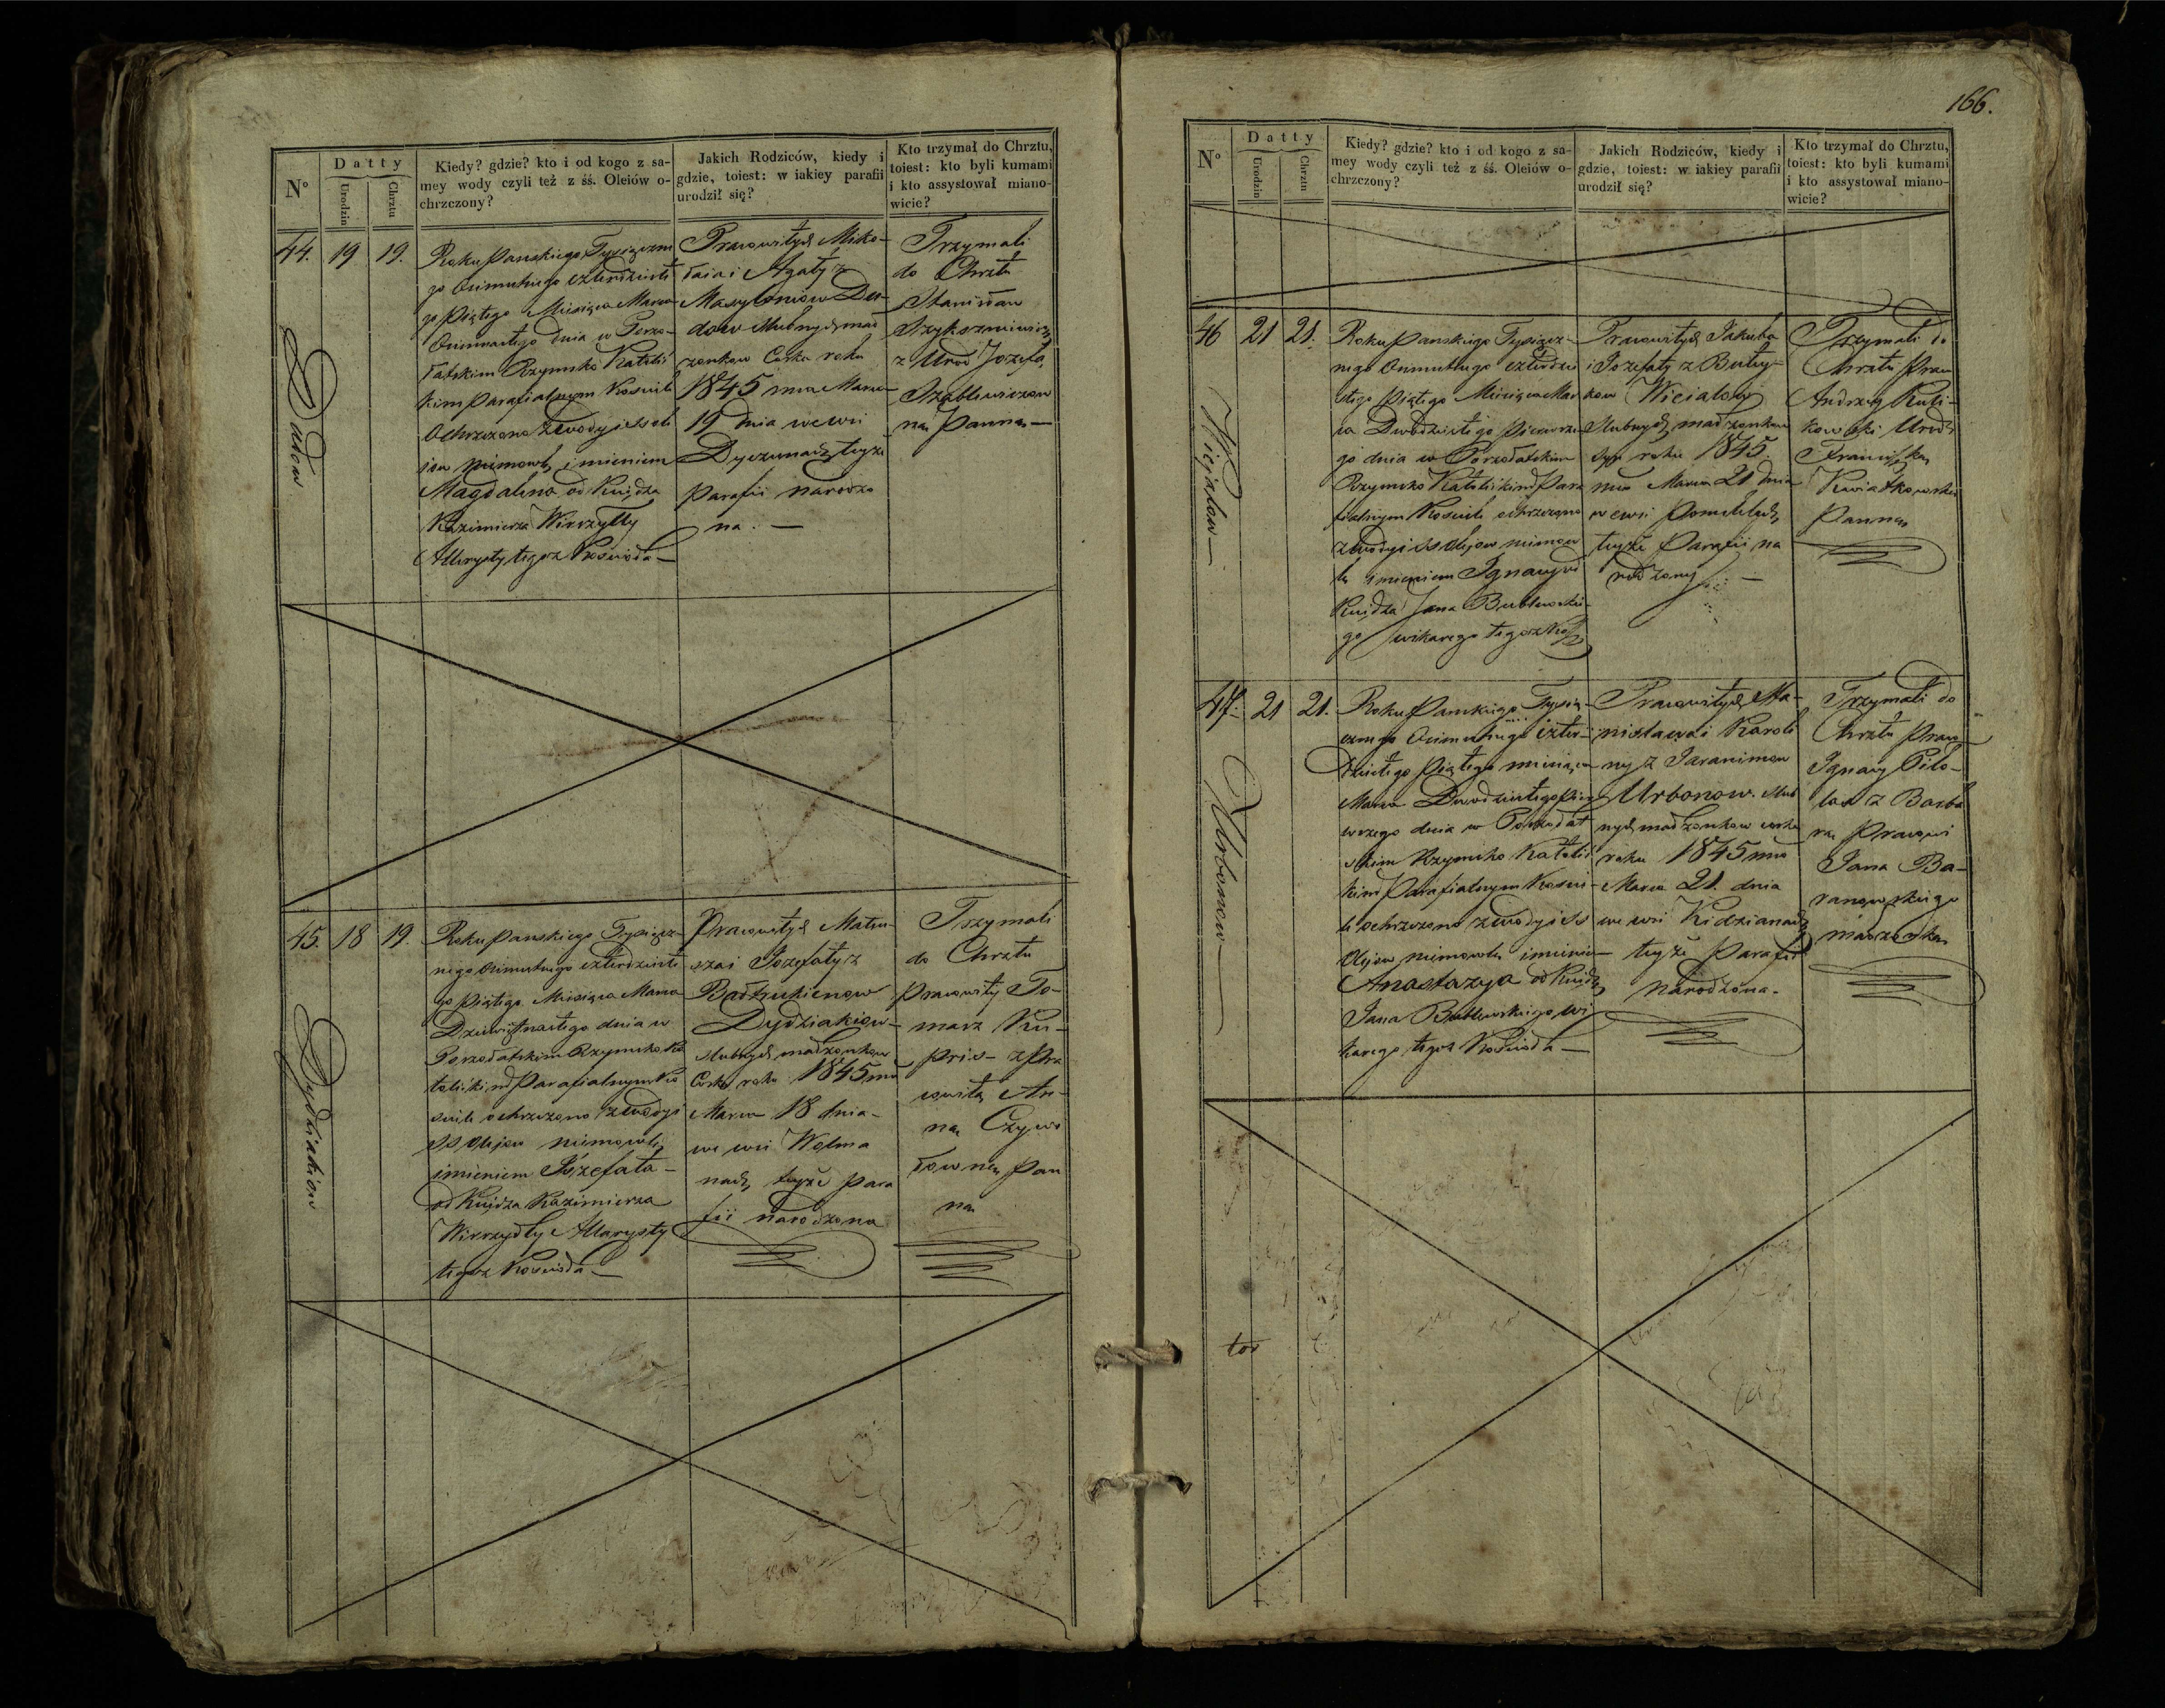 N°
Datty
Urodzin
Chrztu
Kiedy? gdzie? kto i od kogo z sa-
mey wody czyli też z śś. Oleiów o-
chrzczony?
Jakich Rodziców, kiedy i
gdzie, toiest: w iakiey parafii
urodził się?
Kto trzymał do Chrztu,
toiest: kto byli kumami
i kto assystował miano-
wicie?
44. 19 19.
Dudow
Roku Panskiego Tysiączne
go Osimsetnego czterdzieste
go Piątego Miesiąca Marca
dnia w Porzo-
łatskim Rzymsko Katolic
kim Parafialnym Kosciele
Ochrzczono z wody i SS ole
jow niemowle imieniem
Magdalena od Księdza
Kazimierza
Altarysty tegoz Koscioła
Pracowitych Miko-
łaia i Agaty z
Du-
dow slubnych mał
zonkow Corka roku
1845 mca Marca
19 dnia we wsi
tejże
Parafii narodzo
na.
Trzymali
do Chrztu
Stanisław
z Urod Jozefą
Szablewiczow
ną Panną
45. 18 19.
Dydziakiow
Roku Panskiego Tysiącz-
nego Osimsetnego czterdzieste
go Piątego Miesiąca Marca
Dziewiętnastego dnia w
Porzołatskim Rzymsko Ka
tolickim Parafialnym Ko
sciele ochrzczono z wody i
SS Olejow niemowle
imieniem Józefata
od Księdza Kazimierza
Altarysty
tegoz Koscioła
Pracowitych Mateu-
sza i Jozefaty z
Dydziakiow
slubnych małzonkow
Corka roku 1845 mca
Marca 18 dnia
we wsi Wolma
nach tejże para
fii narodzona
Trzymali
do Chrztu
Pracowity To-
masz Ku-
pris z Pra
cowitą An-
ną Czyw
łowną Pan
ną
166.
N°
Datty
Urodzin
Chrztu
Kiedy? gdzie? kto i od kogo z sa-
mey wody czyli też z śś. Oleiów o-
chrzczony?
Jakich Rodziców, kiedy i
gdzie, toiest: w iakiey parafii
urodził się?
Kto trzymał do Chrztu,
toiest: kto byli kumami
i kto assystował miano-
wicie?
46 21 21.
Wiciałow
Roku Panskiego Tysiącz-
nego Osimsetnego czterdzie
stego Piątego Miesiąca Mar
ca Dwudziestego Pierwsze
go dnia w Porzołatskim
Rzymsko Katolickim Para
fialnym Kosciele ochrzczono
z wody i SS Olejow niemow
le imieniem Ignacy od
Księdza Jana Bublewskie
go wikarego tegoz
Pracowitych Jakuba
i Jozefaty z
Wiciałow
slubnych małzonkow
syn roku 1845.
mca Marca 21 dnia
we wsi
tejże Parafii na
rodzony
Trzymali do
Chrztu Prac
Andrzej Kuli-
kowski Urod
Franciszką
Kwiatkowską
Panną
47. 21 21.
Urbonow
Roku Panskiego Tysią-
cznego Osimsetnego czter-
dziestego Piątego miesiąca
Marca Dwudziestego Pier
wszego dnia w Porzołat
skim Rzymsko Katolic
kim Parafialnym Kosci-
le ochrzczono z wody i SS
Olejow niemowle imieniem
Anastazya od Księdza
Jana Bublewskiego wi
karego tegoz Koscioła
Pracowitych Sta-
nisława i Karoli
ny z Jaranimow
Urbonow slub
nych małzonkow corka
roku 1845 mca
Marca 21. dnia
we wsi Kidzianach
tejże Parafii
narodzona.
Trzymali do
Chrztu Praco
Ignacy
z Barba
rą Pracowi
Jana Ba-
ranowskiego
małzonką